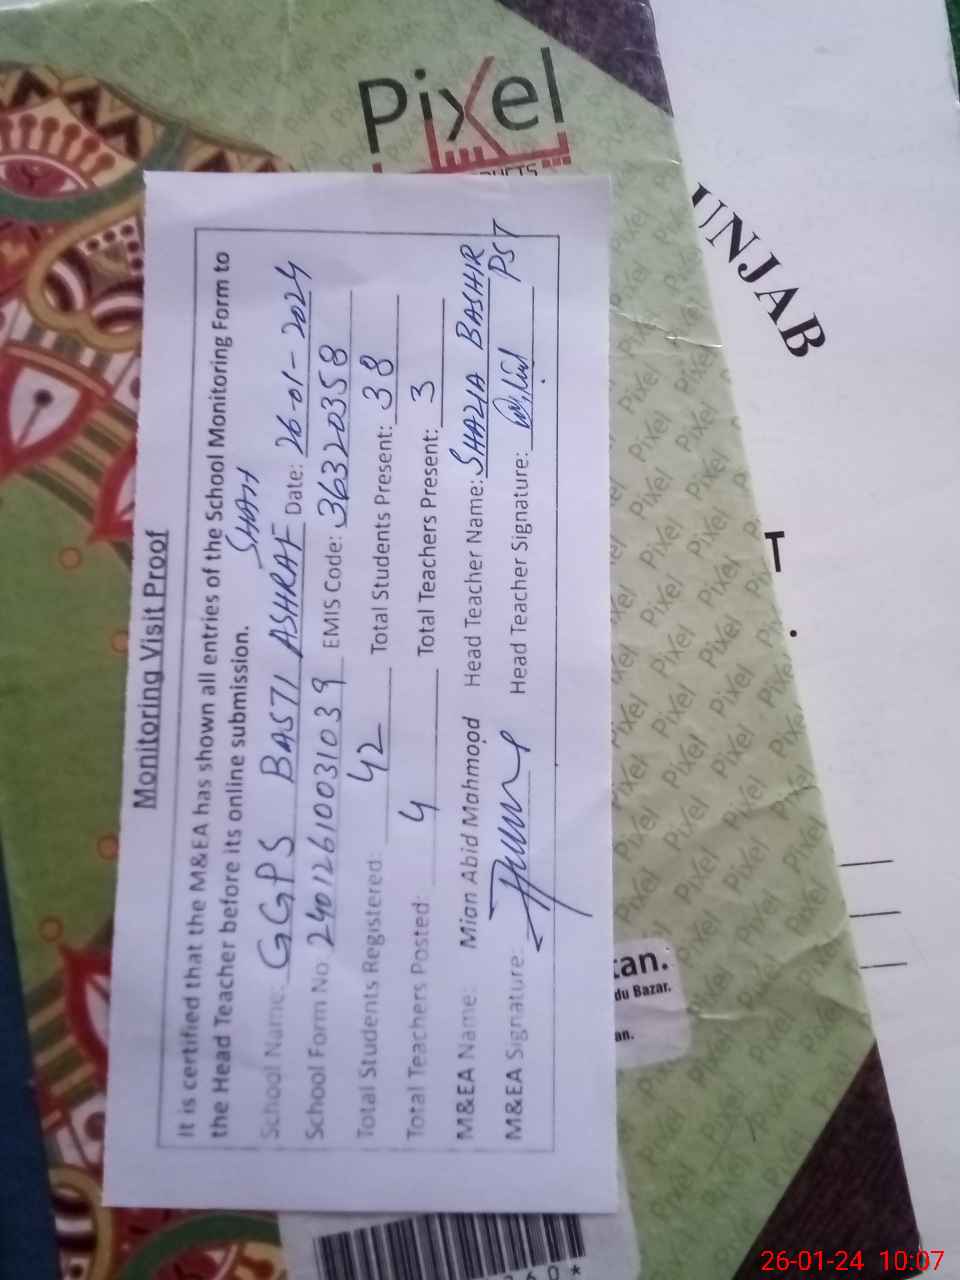 Pixel
UNJAB
T
.
Monitoring Visit Proof
It is certified that the M&EA has shown all entries of the School Monitoring Form to
the Head Teacher before its online submission.
SHAH
School Name: GGPS BASTI ASHRAF Date: 26-01-2024
School Form No 24012610031039 EMIS Code: 36320358
Total Students Registered: 42 Total Students Present: 38
Total Teachers Posted: 4 Total Teachers Present: 3
M&EA Name: Mian Abid Mahmood Head Teacher Name: SHAZIA BASHIR
M&EA Signature: Head Teacher Signature: PST
tan.
du Bazar.
an.
26-01-24 10:07